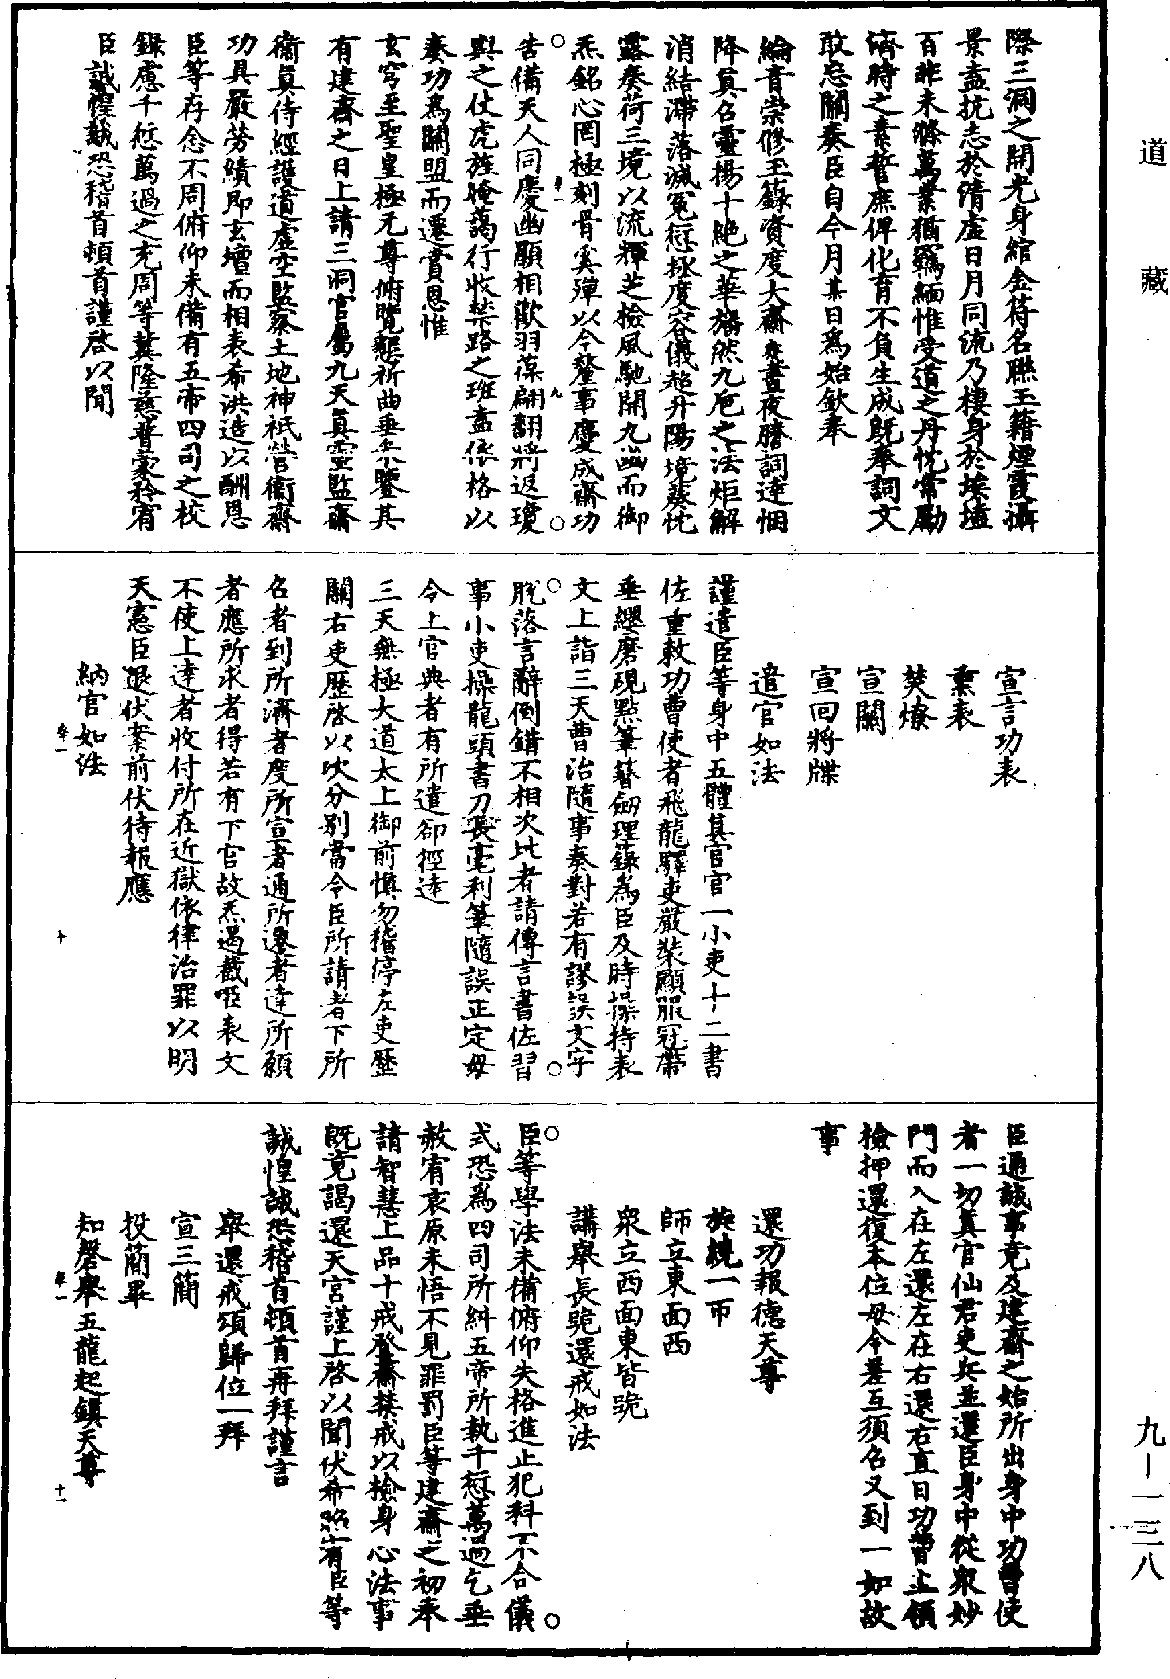 道藏
際三洞之開光身綰金符名聯玉籍煙霞攝
景盍抗志於清虛日月同流乃棲身於埃壒
百非未滌萬業猶羈緬惟受道之丹忱常勵
濟時之素誓庶俾化育不負生成既奉詞文
敢忘關奏臣自今月某日為始欽奉
綸音崇修玉籙資度大齋晝夜謄詞達悃
降真召靈揚十絕之華旛然九巵之法炬解
消結滯落滅冤愆拯度容儀超升陽境葵忱
露奏荷三境以流輝芝檢風馳開九幽而御
炁銘心罔極刻骨奚殫以今釐事慶成齋功
告備天人同慶幽顯相歡羽葆翩翻將返瓊
輿之仗虎旌腌藹行收禁路之班盍依格以
奏功為關盟而遷賞恩惟
玄穹至聖皇極元尊俯覽懇祈曲垂昭鑒其
有建齋之日上請三洞官屬九天真靈監齋
衛真侍經護道虛空監察土地神祇營衛齋
功具嚴勞績即玄壇而相表希洪造以酬恩
臣等存念不周俯仰未備有五帝四司之校
錄慮千愆萬過之充周等冀隆慈普蒙矜宥
臣誠惶誠恐稽首頓首謹啓以聞
宣言功表
熏表
焚燎
宣關
宣回將牒
遣官如法
謹遣臣等身中五體真官官一小吏十二書
佐重敕功曹使者飛龍驛吏嚴裝顯服冠帶
垂纓磨硯點筆簪劒理籙為臣及時操持表
文上詣三天曹治隨事奏對若有謬誤文字
脫落言辭倒錯不相次比者請傳言書佐習
事小吏操龍頭書刀長毫利筆隨誤正定毋
令上官典者有所遣卻徑達
三天無極大道太上御前慎勿稽停左吏歷
關右吏歷啓以次分別當令臣所請者下所
召者到所濟者度所宣者通所遷者達所願
者應所求者得若有下官故炁遏截吾表文
不使上達者收付所在近獄依律治罪以明
天憲臣退伏案前伏待報應
納官如法
臣通誠事竟及建齋之始所出身中功曹使
者一切真官仙君吏兵並還臣身中從眾妙
門而入在左還左在右還右直日功曹主領
檢押還復本位毋令差互須召又到一如故
事
還功報德天尊
旋繞一帀
師立東面西
眾立西面東皆跪
講舉長跪還戒如法
臣等學法未備俯仰失格進止犯科不合儀
式恐為四司所糾五帝所執千愆萬過乞垂
赦宥哀原未悟不見罪罰臣等建齋之初奉
請智慧上品十戒登齋禁戒以檢身心法事
既竟謁還天宮謹上啓以聞伏希照宥臣等
誠惶誠恐稽首頓首再拜謹言
舉還戒頌歸位一拜
宣三簡
投簡畢
知磬舉五龍起鎮天尊
九—一三八